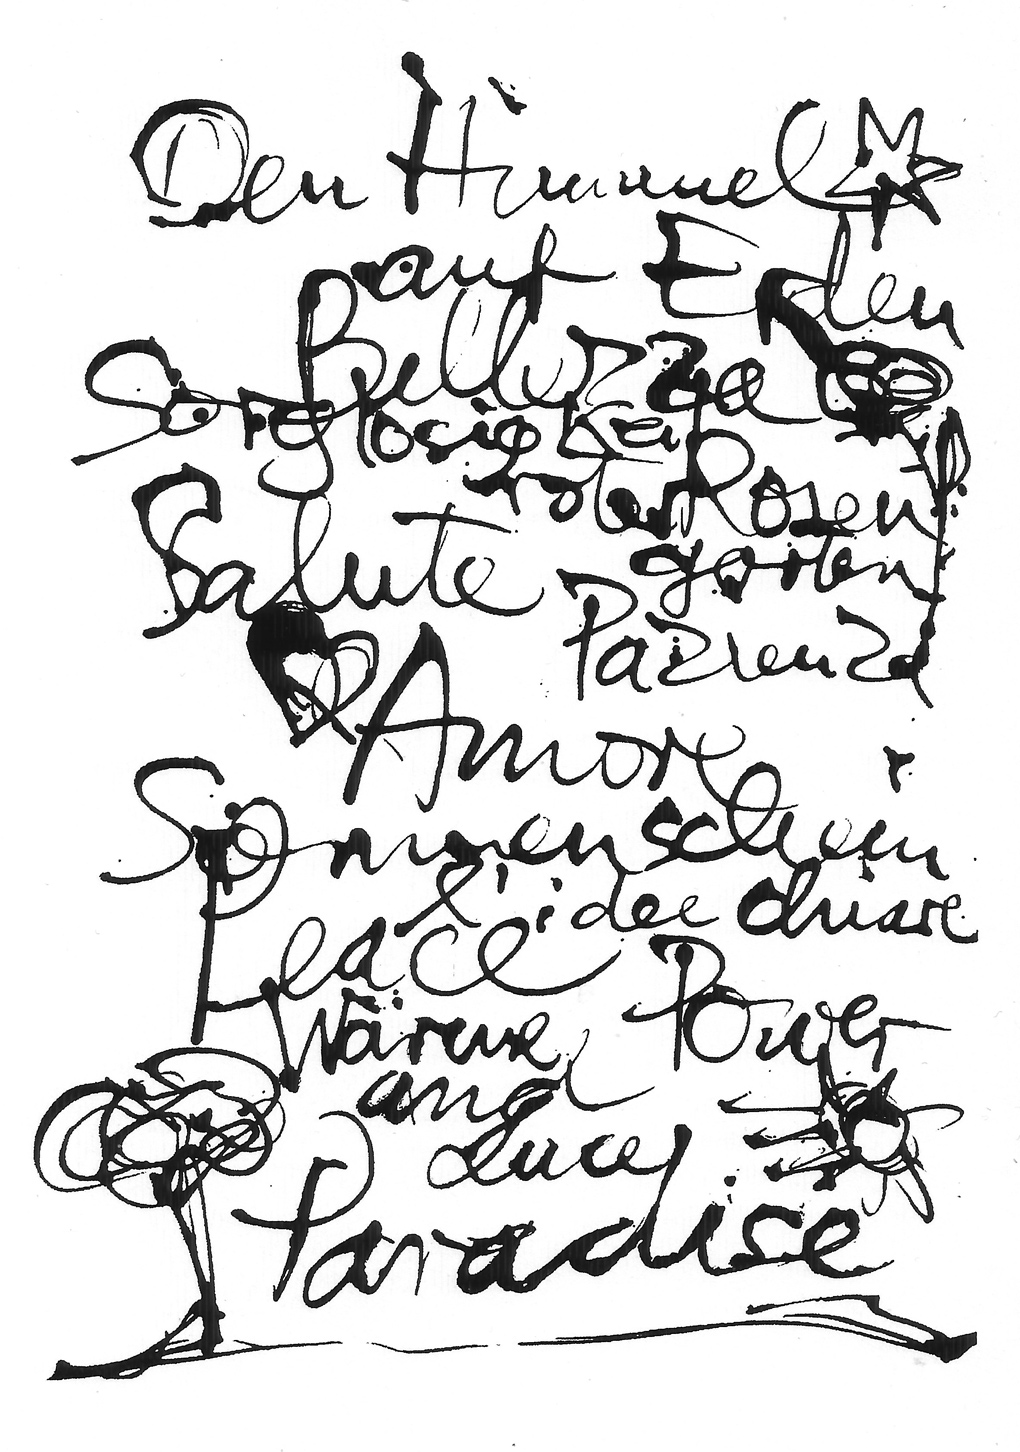 Den Himmel
auf Erden
Bellezza
Sorglosigkeit
rote Rosen
garten
Salute
Pazienza
Amore
Sonnenschein
l'idee chiare
Peace
Wärme Power
and
Luce
Paradise